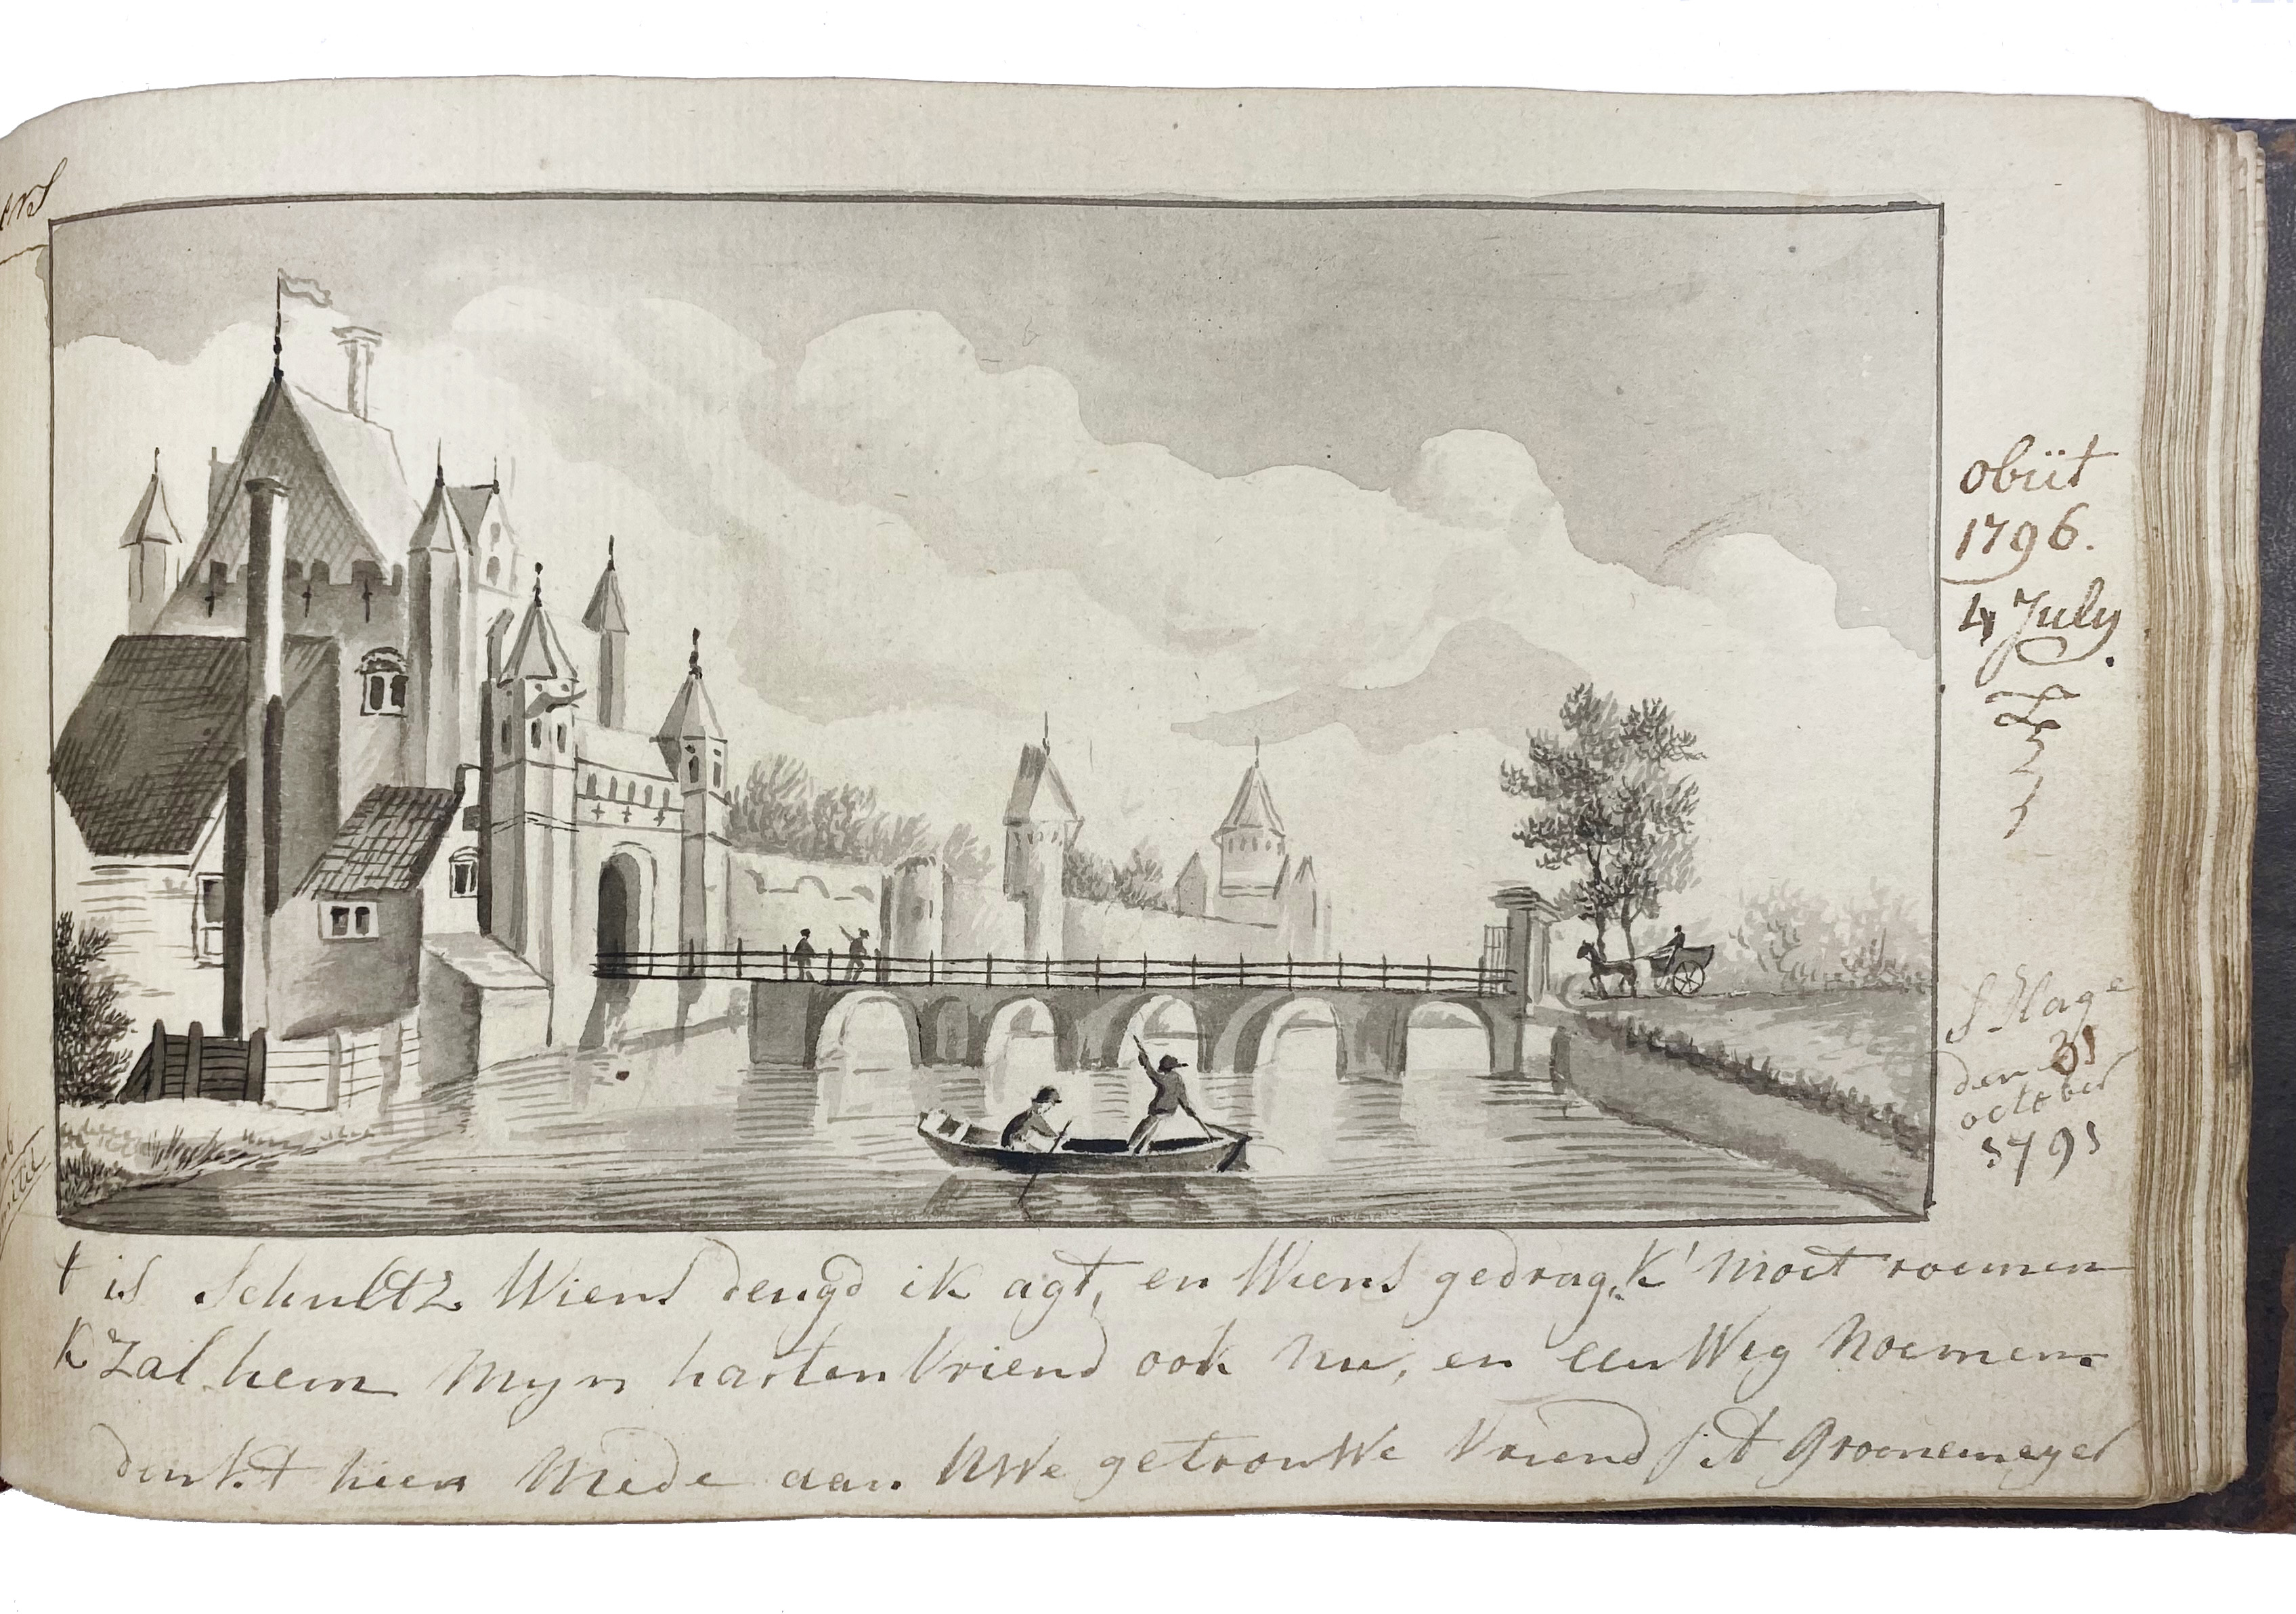 ers
obiit
1796.
4 July.
S Hage
den 31
october
1791
t is Schultz Wiens deugd ik agt, en Wiens gedrag, K' moet roemen
K Zal hem Myn harten Vriend ook nu, en eeuWig Noemen.
denkt hier Mede aan UWe getrouWe Vriend Groenemeyer